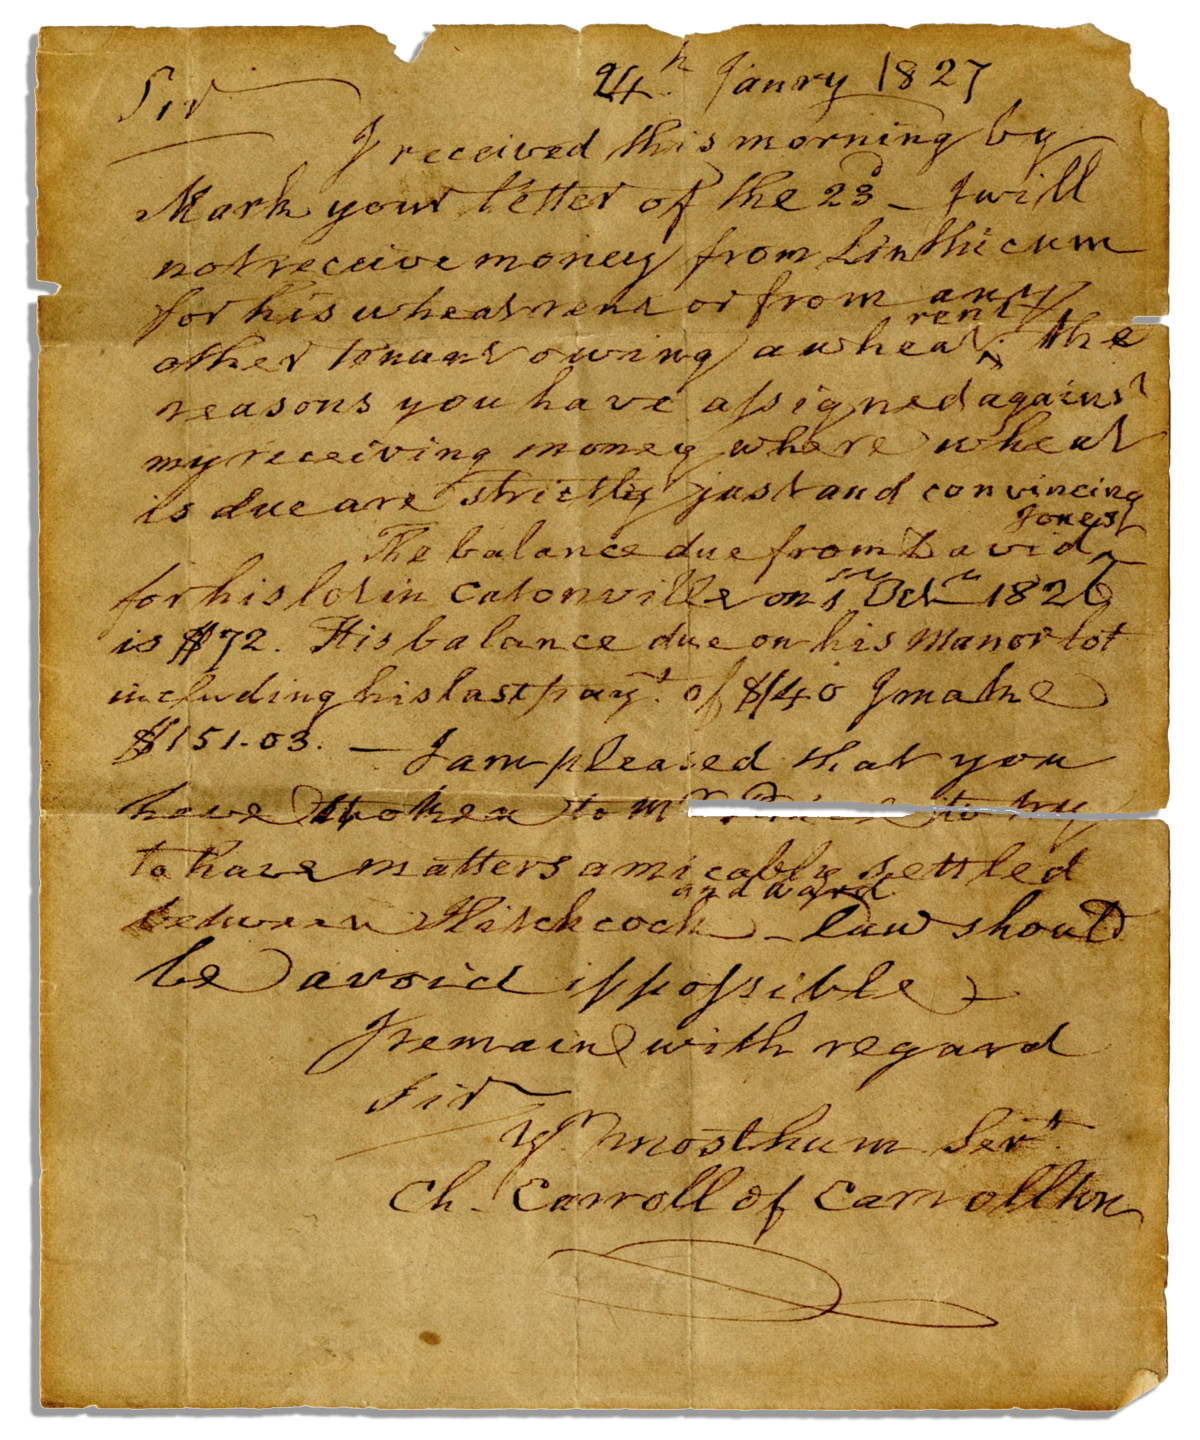 24.h Janry 1827
Sir
I received this morning by
Mark your letter of the 23d _ I will
not receive money from Linthicum
for his wheat rent or from any
other tenant owing a wheat rent. the
reasons you have assigned against
my receiving money where wheat
is due are strictly just and convincing
The balance due from David Jones
for his lot in Catonville on 1st Octr 1826
is $72. His balance due on his Manor lot
including his last payt. of $140 I make
$151.03. — I am pleased that you
have spoken to Mr to try
to have matters amicably settled
between Hitchcock and Ward _ law should
be avoid if possible
I remain with regard
Sir
Yr. most hum Servt.
Ch. Carroll of Carrollton